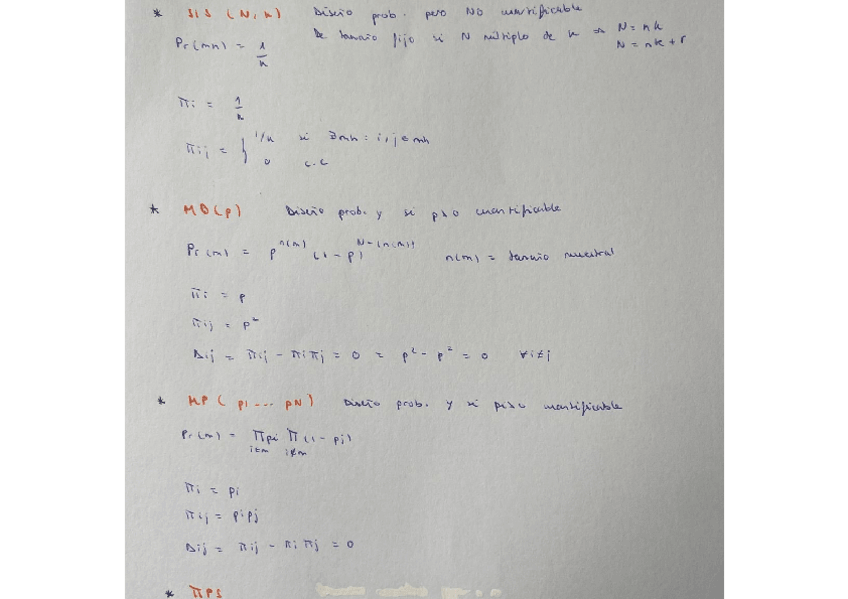 * SIS (N, k) Diseño prob. pero NO cuantificable
Pr(mk) = 1/k De tamaño fijo si N múltiplo de k ⇒ N = nk
N = nk + r
πi = 1/k
πij = { 1/k si ∃mk : i, j ∈ mk
0 c.c
* MB(p) Diseño prob. y si p>0 cuantificable
Pr(m) = p^n(m) (1-p)^N-(n(m)) n(m) = tamaño muestral
πi = p
πij = p²
Δij = πij - πiπj = 0 = p² - p² = 0 ∀i≠j
* MP (p1 ... pN) Diseño prob. y si pi>0 cuantificable
Pr(m) = Π pi Π (1 - pi)
i∈m i∉m
πi = pi
πij = pipj
Δij = πij - πiπj = 0
* πPS